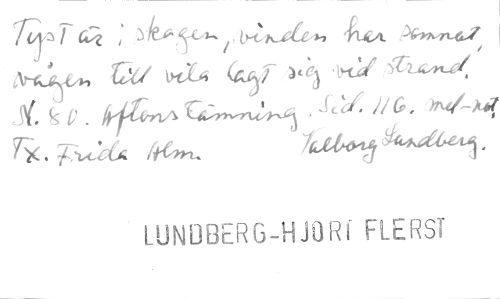 Tyst är i skogen, vinden har somnat,
vågen till vila lagt sig vid strand.
N. 80. Aftonstämning. Sid. 116. mel-not.
Tx. Frida Alm. Valborg Lundberg.
LUNDBERG-HJORT FLERST